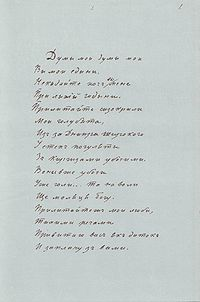 1
Думы мои думы мои
Вы мои едыни.
Некыдайте хоч вы мене
При лыхій годыни.
Прилитайте сизокрили
Мои голубята,
Из за Днипра широкого
У степ погуляты
За Киргизами убогими.
Воны вже убоги
Уже голи.. та на воли
Ще молятця Богу.
Прилитайтеж мои люби,
Тыхими речами
Привитаю вас як диток
И заплачу з вами.